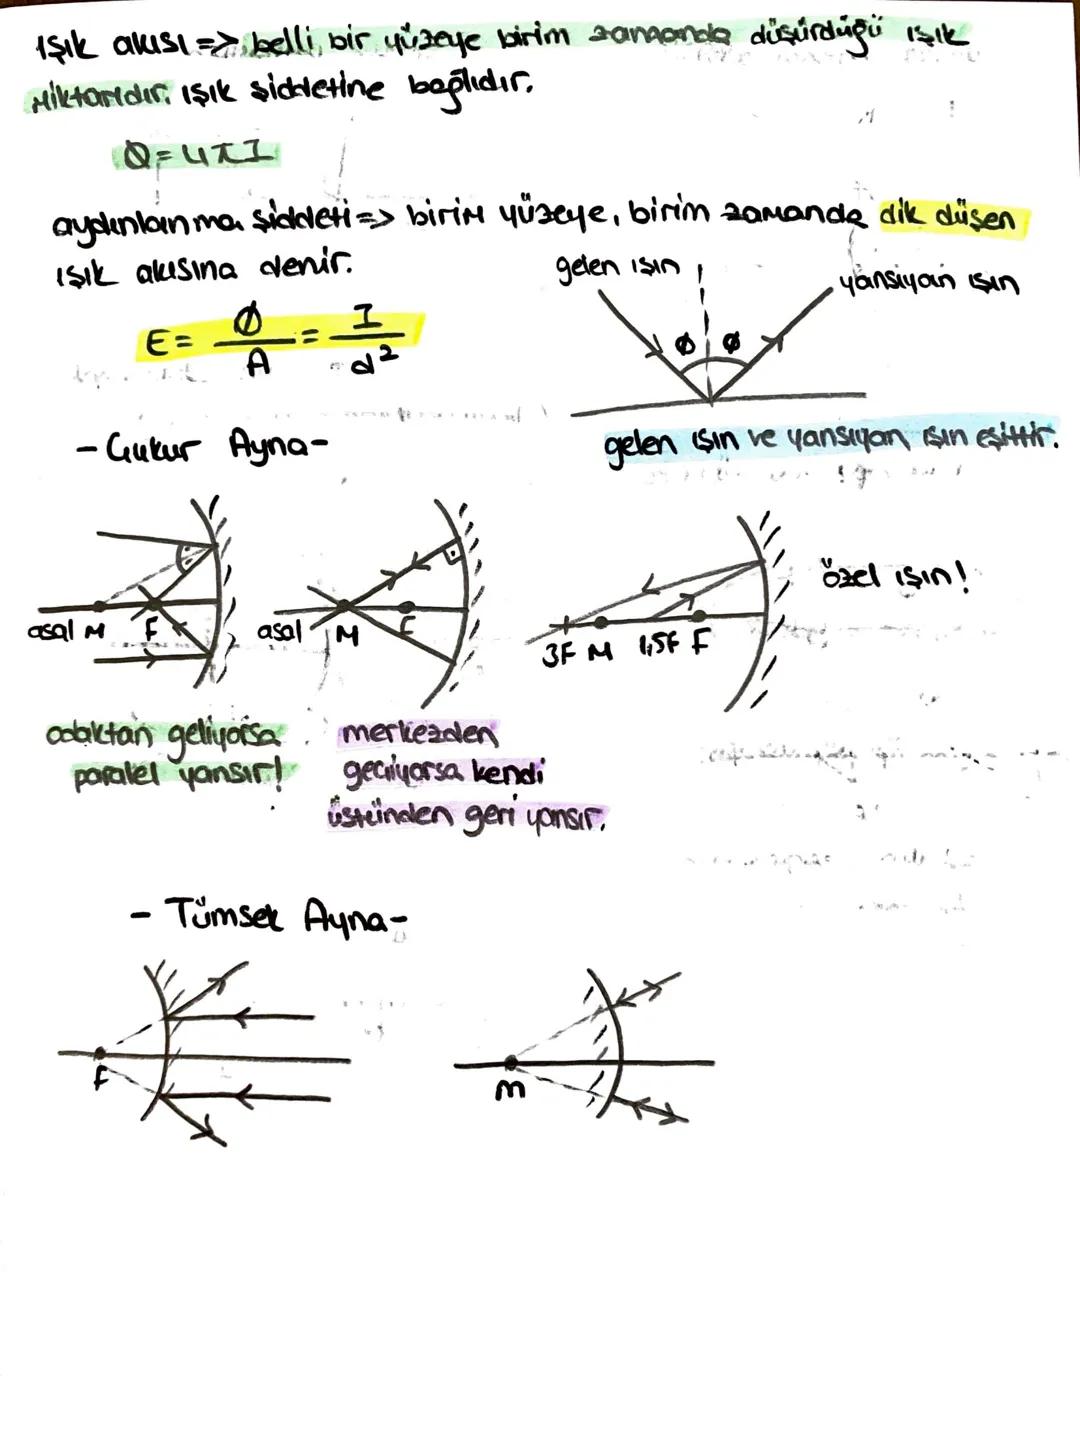 Işık akısı => belli bir yüzeye birim zamanda düşürdüğü ışık
miktarıdır. Işık şiddetine bağlıdır.
Ø = 4πI
aydınlanma şiddeti => birim yüzeye, birim zamanda dik düşen
ışık akısına denir.
E = Ø/A = I/d²
gelen ışın
yansıyan ışın
Ø Ø
gelen ışın ve yansıyan ışın eşittir.
- Çukur Ayna -
asal M F
asal M F
3F M 1,5F F
özel ışın!
odaktan geliyorsa
paralel yansır!
merkezden
geçiyorsa kendi
üstünden geri yansır.
- Tümsek Ayna -
F
M